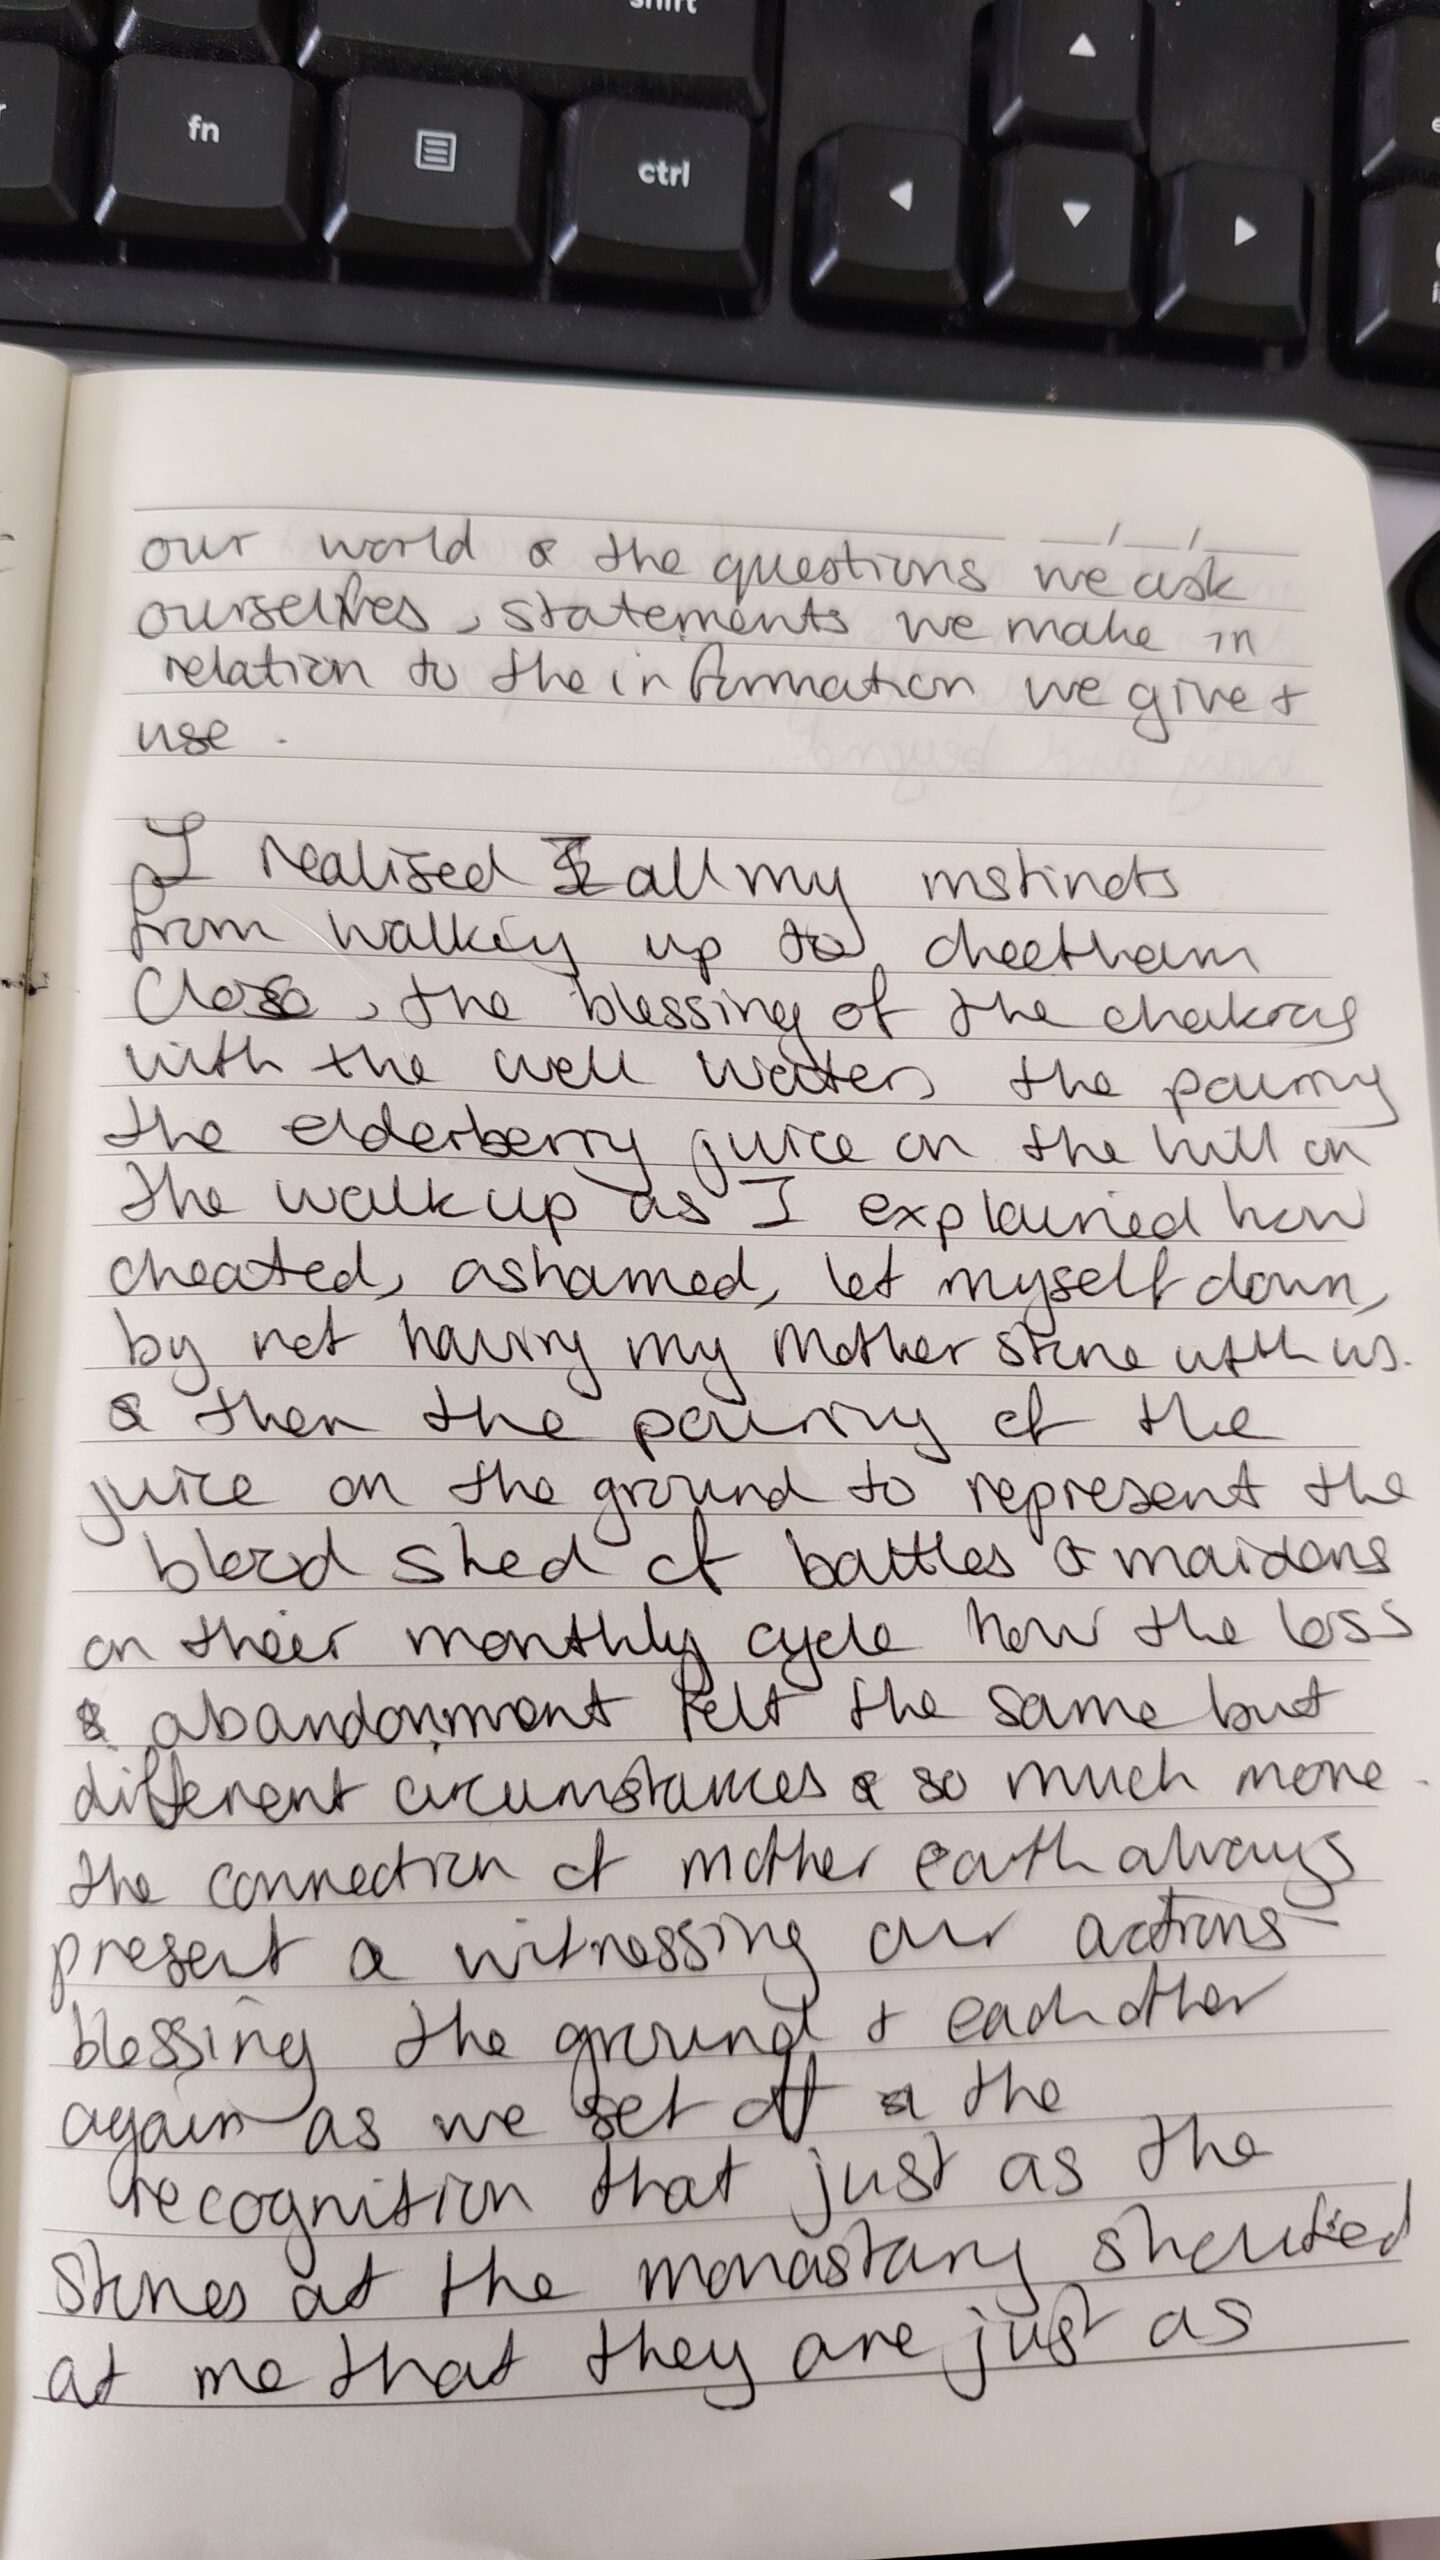 shift
fn
ctrl
our world & the questions we ask
ourselves, statements we make in
relation to the information we give +
use.
I realised all my instincts
from walking up to cheetham
Close, the blessing of the chakras
with the well waters, the pouring
the elderberry juice on the hill on
the walk up as I explained how
cheated, ashamed, let myself down,
by not having my mother stone with us.
& then the pouring of the
juice on the ground to represent the
blood shed of battles & maidens
on their monthly cycle how the loss
& abandonment felt the same but
different circumstances & so much more.
the connection of mother earth always
present & witnessing our actions -
blessing the ground + each other
again as we set off & the
recognition that just as the
stones at the monastary shouted
at me that they are just as